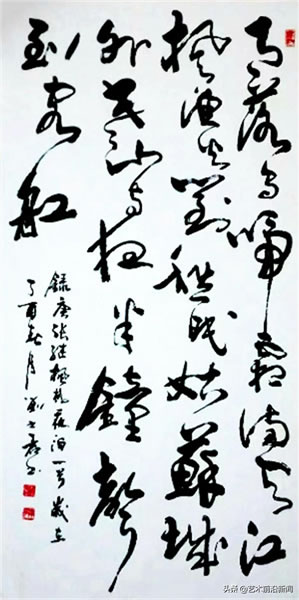 月落烏啼霜滿天江
楓漁火對愁眠姑蘇城
外寒山寺夜半鐘聲
到客舡
錄唐張継楓橋夜泊一首歲在
丁酉月书
头条 @艺术前沿新闻